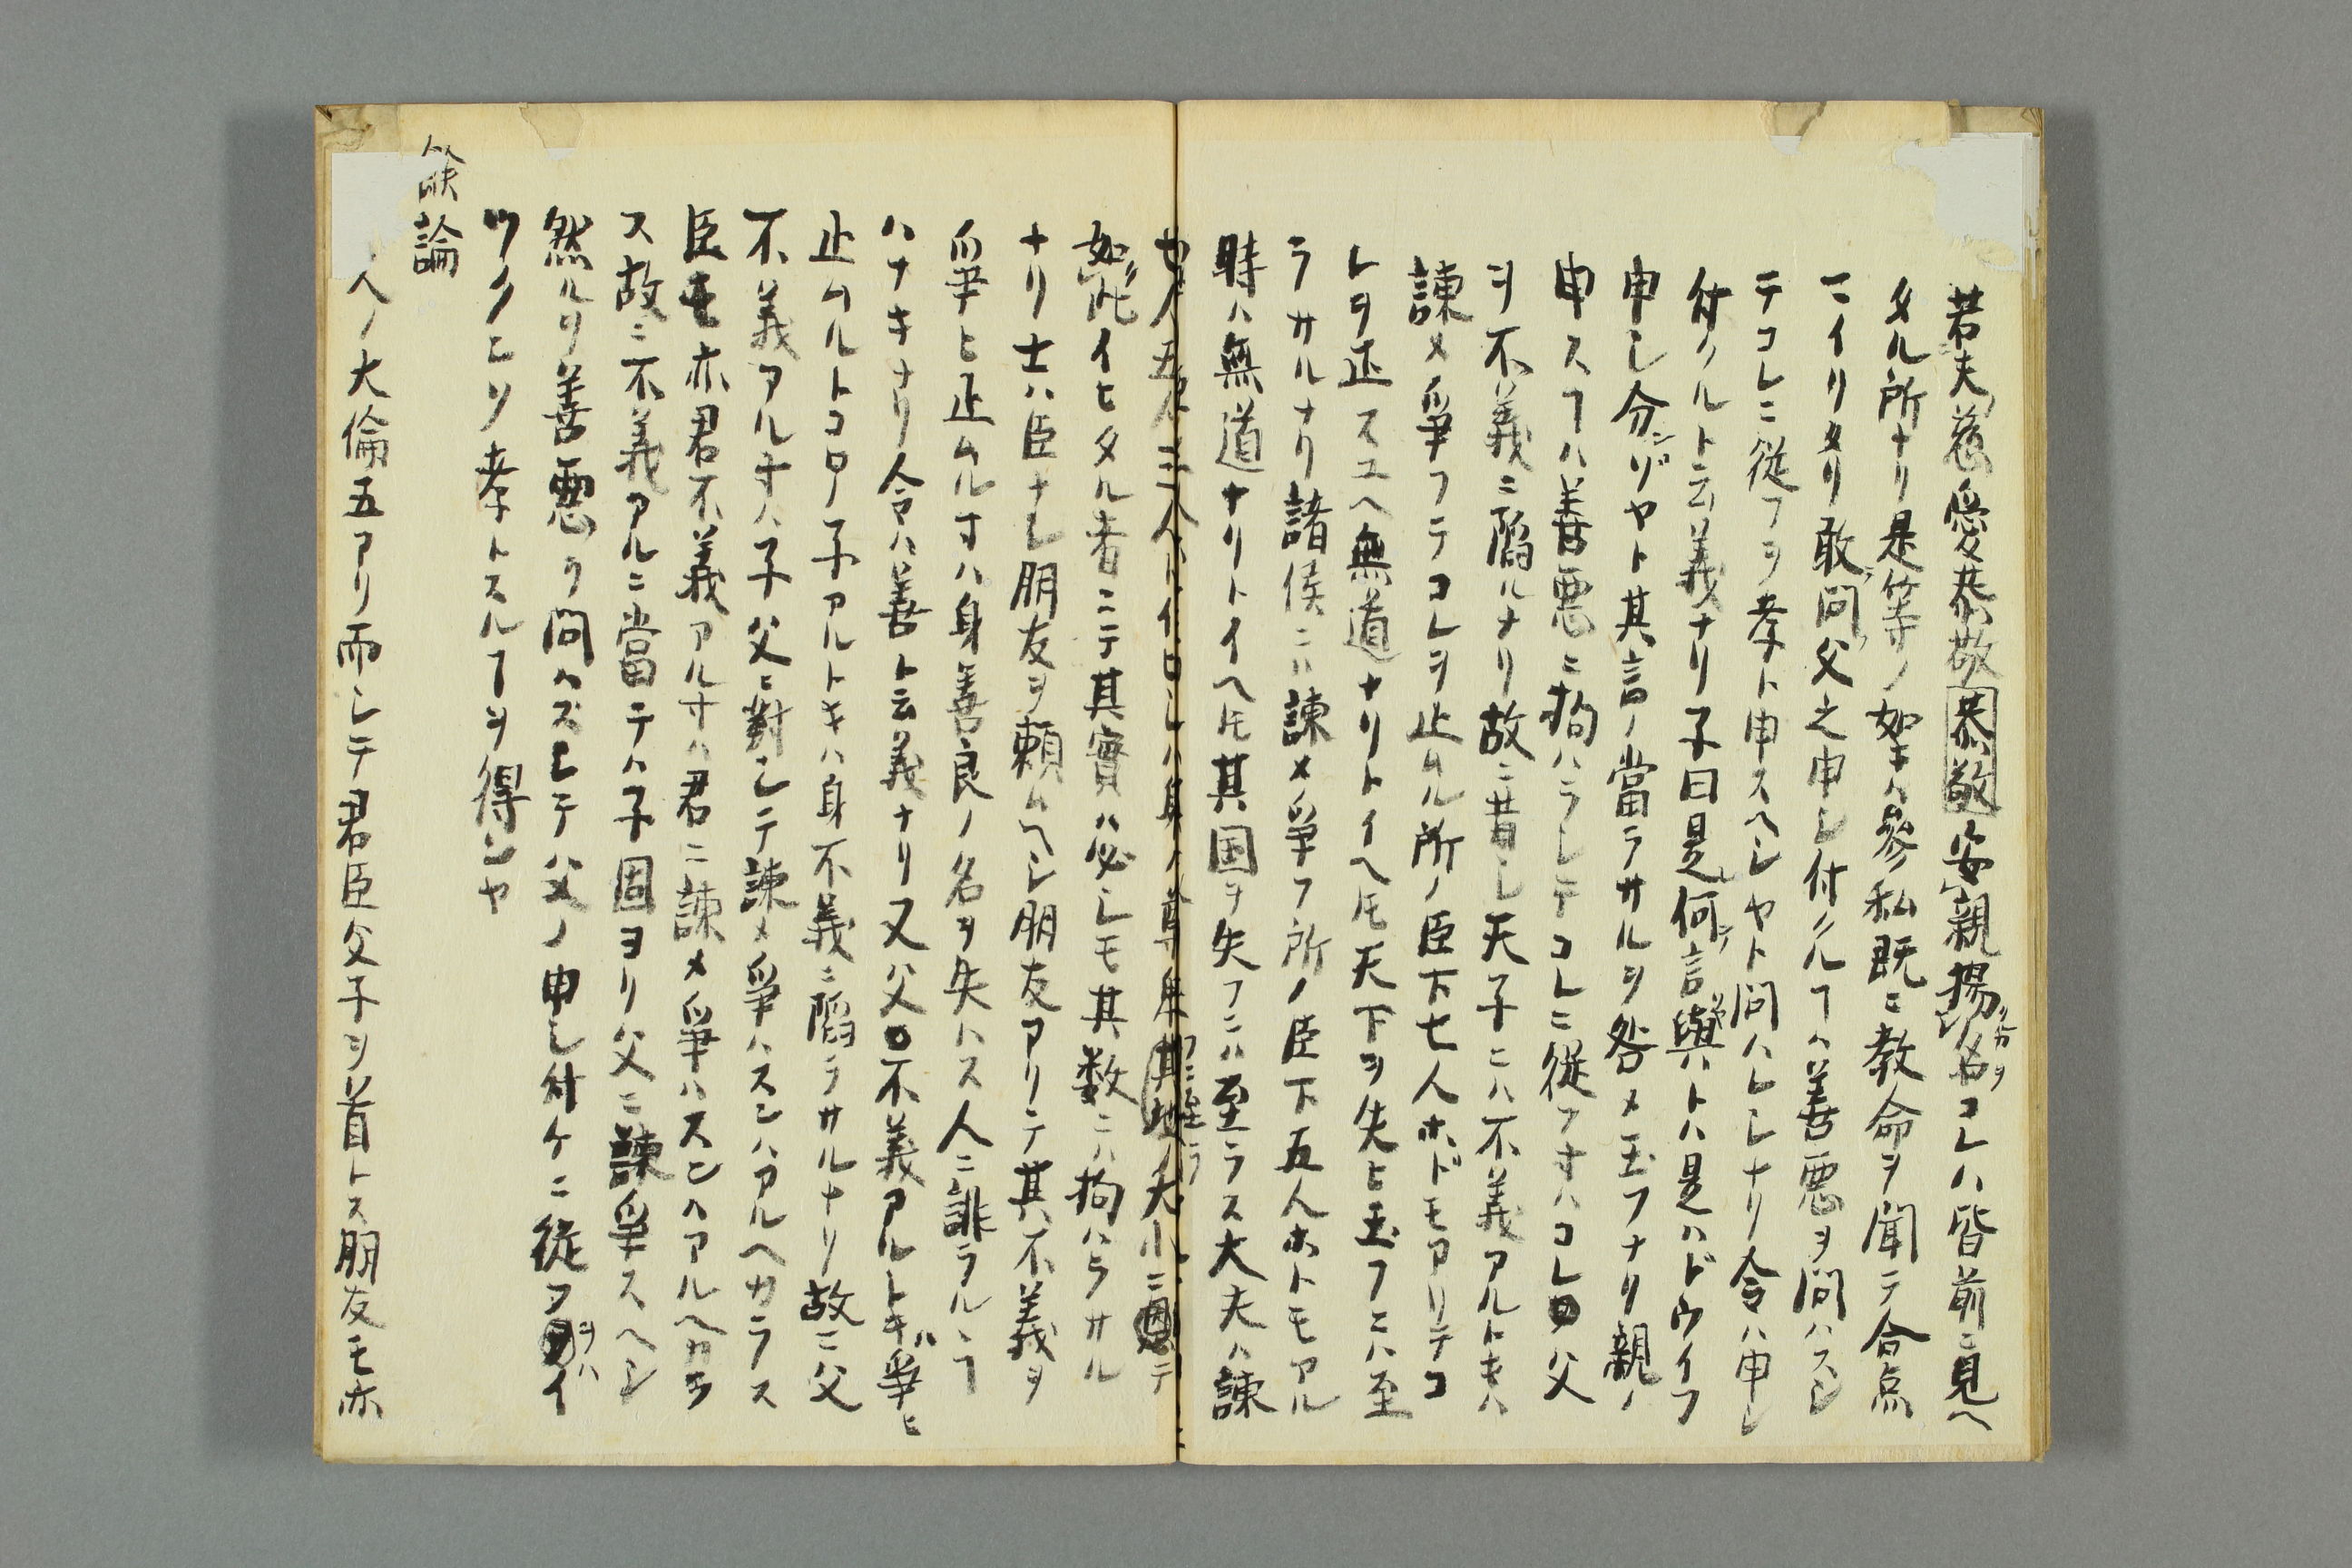 若夫慈愛恭敬恭敬安親揚名コレハ皆前ニ見ヘ
タル所ナリ是等ノ如キハ參私既ニ教命ヲ聞テ合点
マイリタリ敢問父之申シ付ルヿハ善悪ヲ問ハスシ
テコレニ従フヲ孝ト申スヘシヤト問ハレシナリ令ハ申シ
付ルト云義ナリ子曰是何言與トハ是ハドウイフ
申シ分ンゾヤト其言ノ當ラサルヲ咎メ玉フナリ親ノ
申スヿハ善悪ニ拘ハラシテコレニ従フ寸ハコレ父
ヲ不義ニ陷ルナリ故ニ昔シ天子ニハ不義アルトキハ
諫メ爭フテコレヲ止ムル所ノ臣下七人ホドモアリテコ
レヲ正スユヘ無道ナリトイヘ𪜈天下ヲ失ヒ玉フニハ至
ラサルナリ諸侯ニハ諫メ爭フ所ノ臣下五人ホトモアル
時ハ無道ナリトイヘ𪜈其国ヲ失フニハ至ラス大夫ハ諫
七人五人三人ト イロシハ身ノ尊卑其地ノ大小ニ因テ
如此イヒタル者ニテ其實ハ必シモ其数ニハ拘ハラサル
ナリ士ハ臣ナシ朋友ヲ頼ムヘシ朋友アリテ其不義ヲ
爭ヒ止ムル寸ハ身善良ノ名ヲ失ハス人ニ誹ラルヽヿ
ハナキナリ令ハ善ト云義ナリ又父不義アルトキハ爭ヒ
止ムルトコロノ子アルトキハ身不義ニ陷ラサルナリ故ニ父
不義アル寸ハ子父ニ對シテ諫メ爭ハスンハアルヘカラス
臣モ亦君不義アル寸ハ君ニ諫メ爭ハスンハアルヘカラ
ス故ニ不義アルニ當テハ子固ヨリ父ニ諫爭スヘシ
然ルヲ善悪ヲ問ハズシテ父ノ申シ付ケニ従フヲハイ
ツクニソ孝トスルヿヲ得ンヤ
論
人ノ大倫五アリ而シテ君臣父子ヲ首トス朋友モ亦